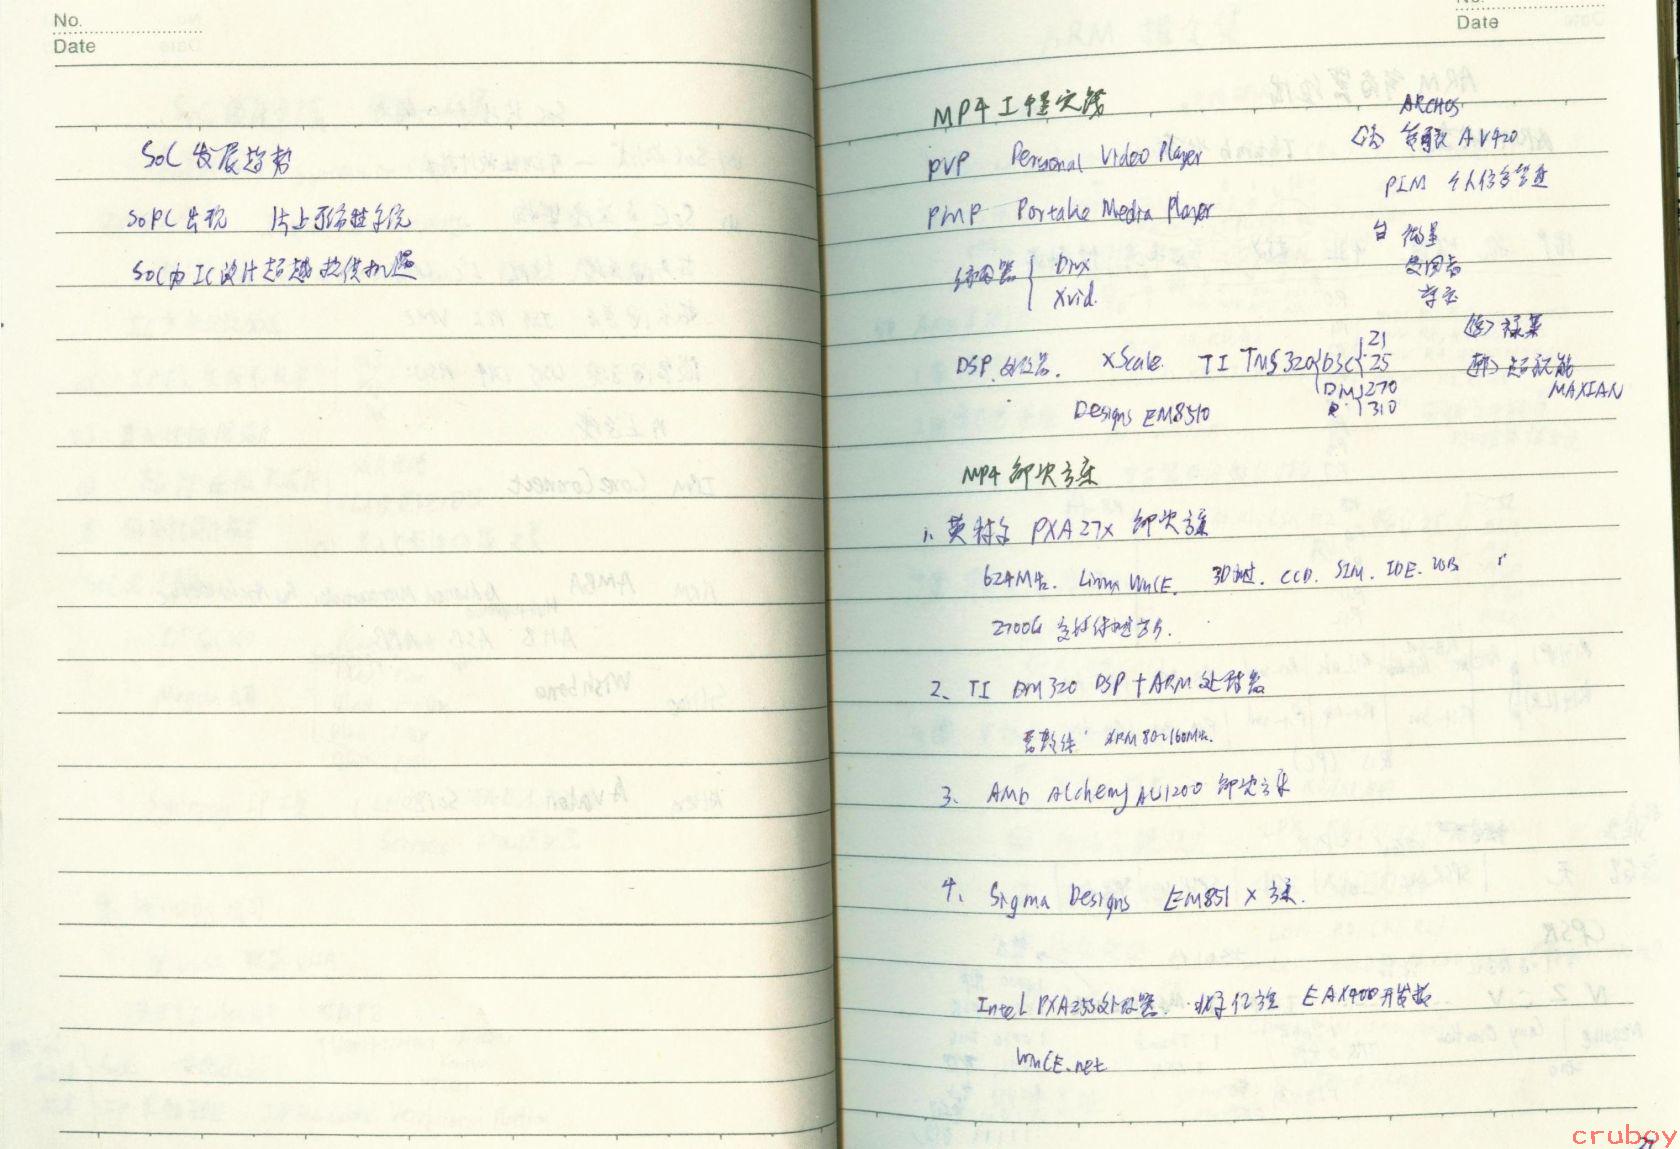 No.
Date
SoC 发展趋势
SoPC 出现 片上可编程系统
SoC为IC设计超越提供机遇
No.
Date
MP4 工程实践
ARCHOS
PVP Personal Video Player
AV420
PIM 个人信息管理
PMP Portable Media Player
台 微星
解码器 { Divx
Xvid.
DSP 处理器. XScale. TI TMS320 { DSC { 21
25
DM { 270
310
MAXIAN
Designs EM8510
MP4 解决方案
1. 英特尔 PXA27x 解决方案
624MHz. Linux WinCE. 3D加速. CCD. SIM. IDE. USB
2700G
2. TI DM320 DSP + ARM 处理器
ARM 80~160MHz.
3. AMD Alchemy AU1200 解决方案
4. Sigma Designs EM851X 方案.
Intel PXA255处理器. 亿道 EAX400开发板
WinCE.net
cruboy